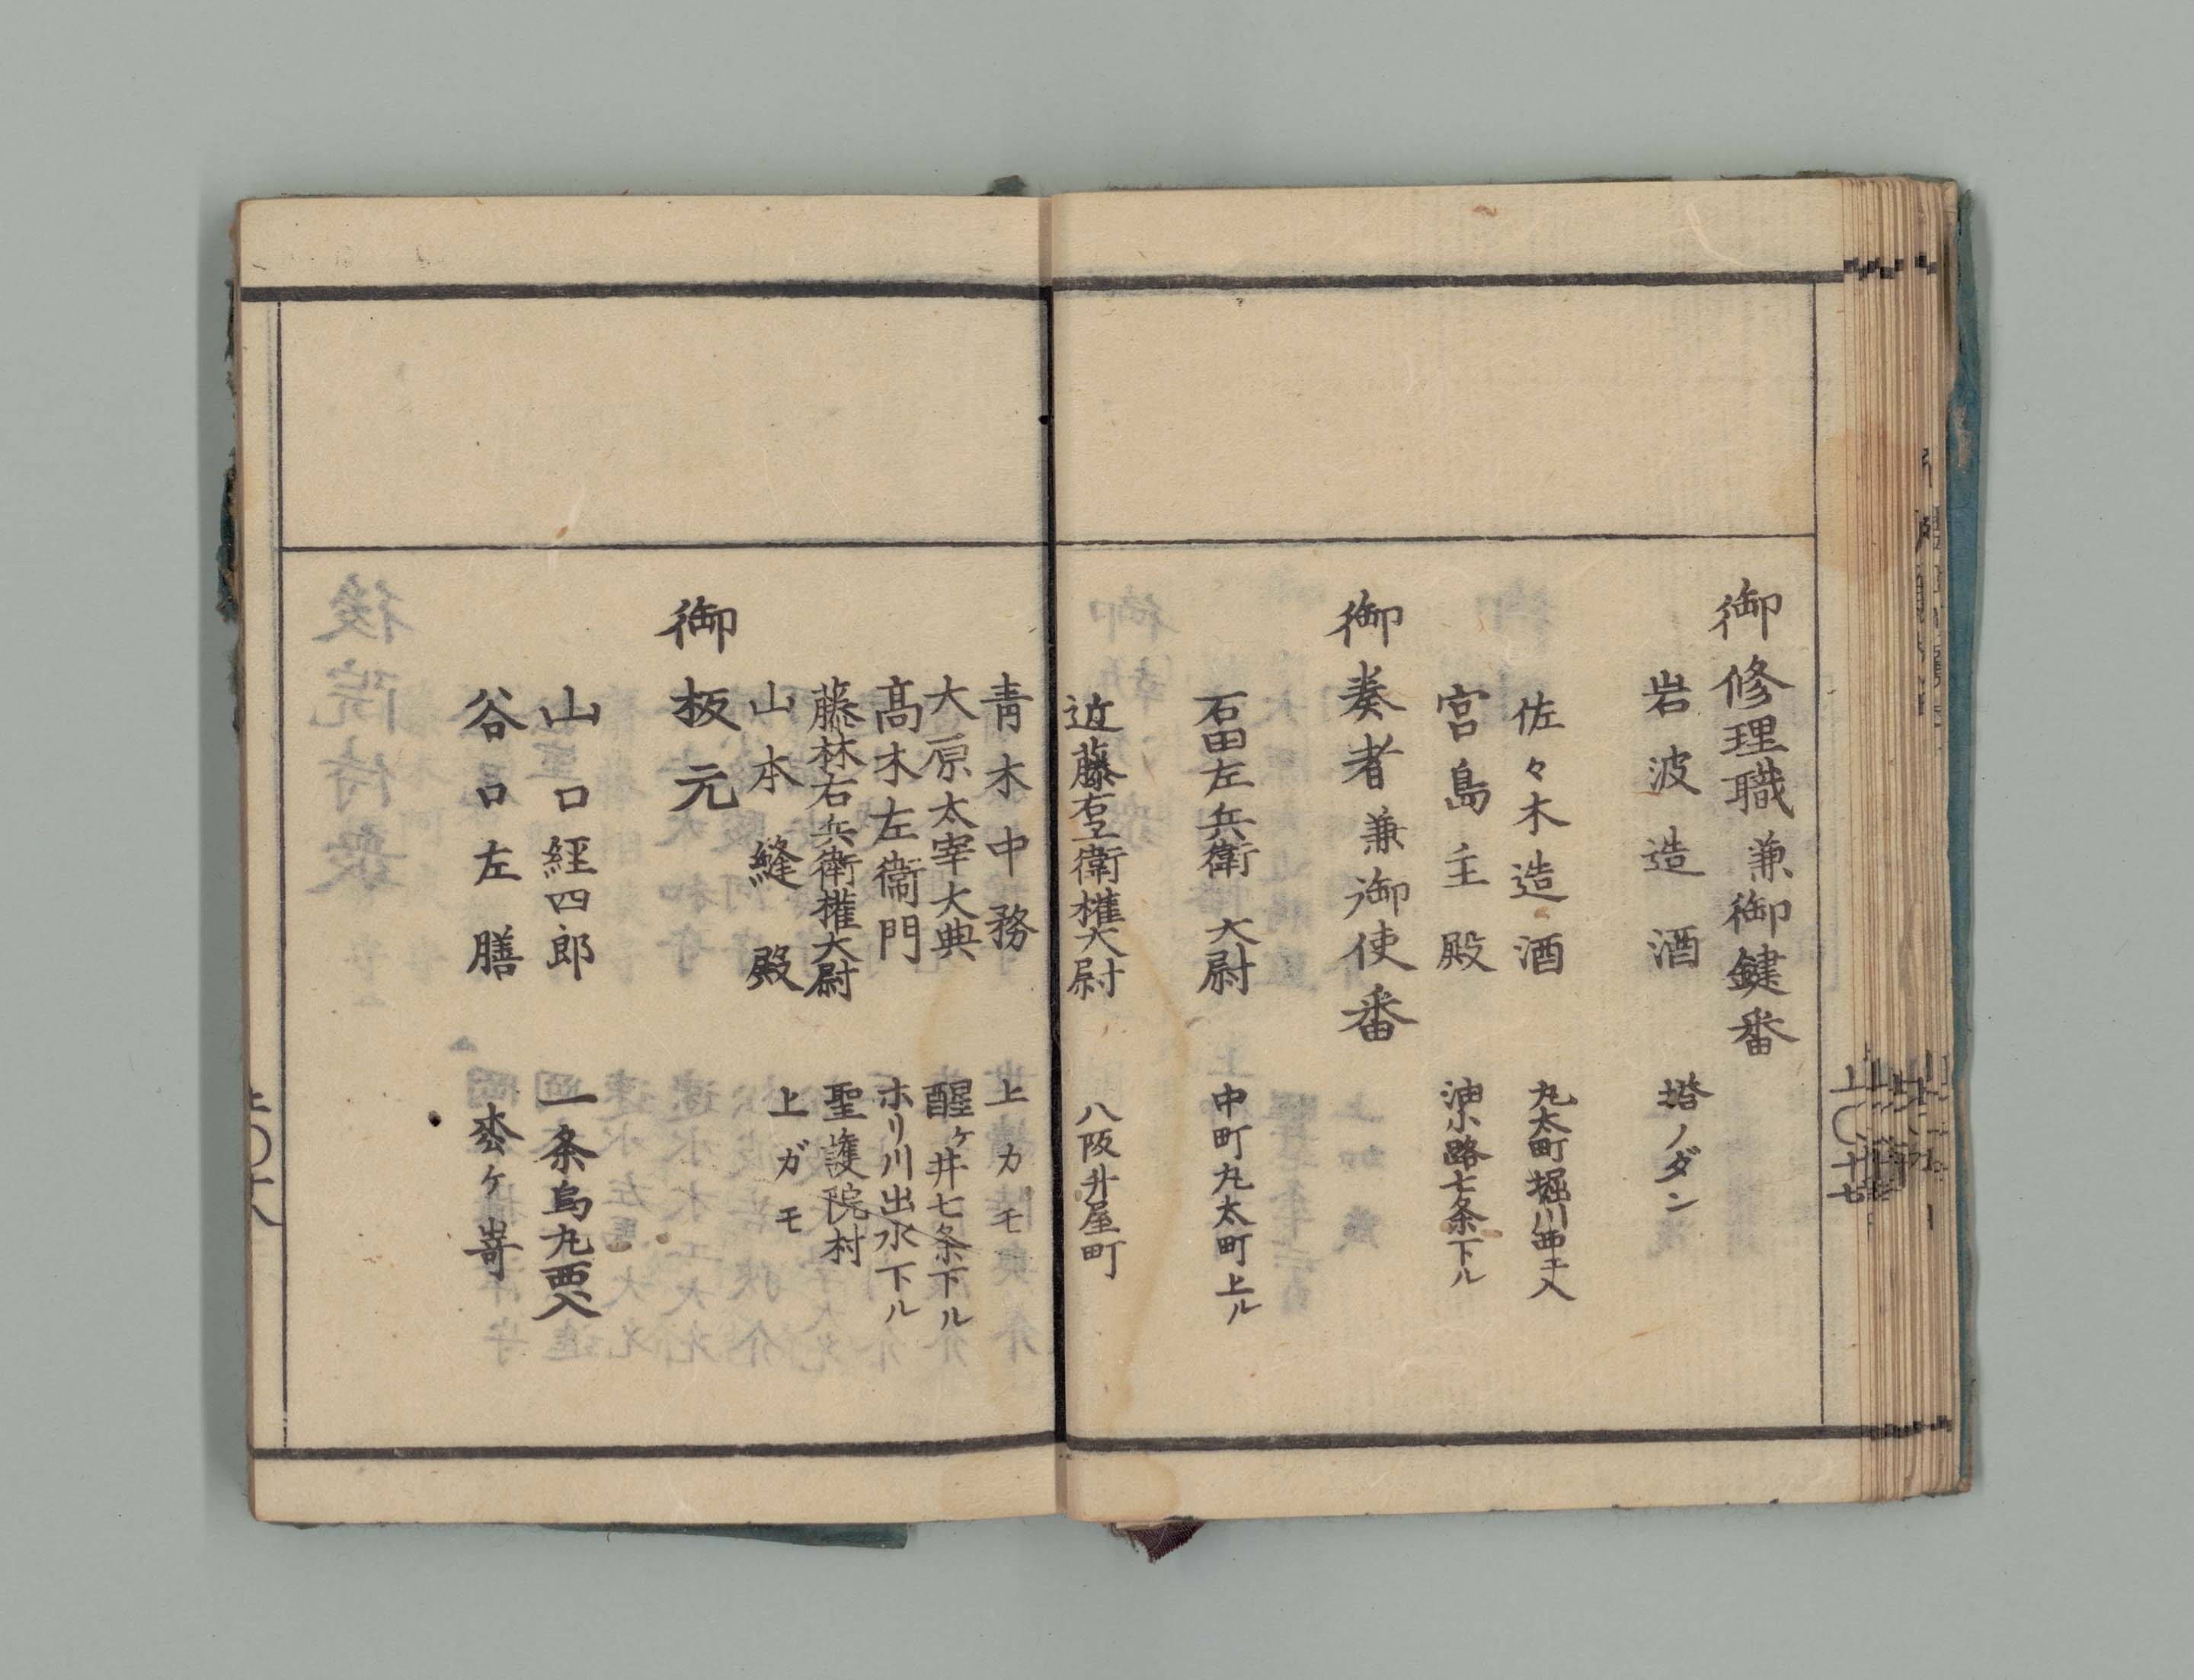 御修理職兼御鍵番
岩波造酒 塔ノダン
佐々木造酒 丸太町堀川西エ入
宮島主殿 油小路七条下ル
御奏者兼御使番
石田左兵衛大尉 中町丸太町上ル
近藤右兵衛権大尉 八阪升屋町
上〇十七
青木中務 上カモ
大原太宰大典 醒ヶ井七条下ル
髙木左衛門 ホリ川出水下ル
藤林右兵衛権大尉 聖護院村
山本縫殿 上ガモ
御板元
山口経四郎 一条烏丸西入
谷口左膳 枩ヶ嵜